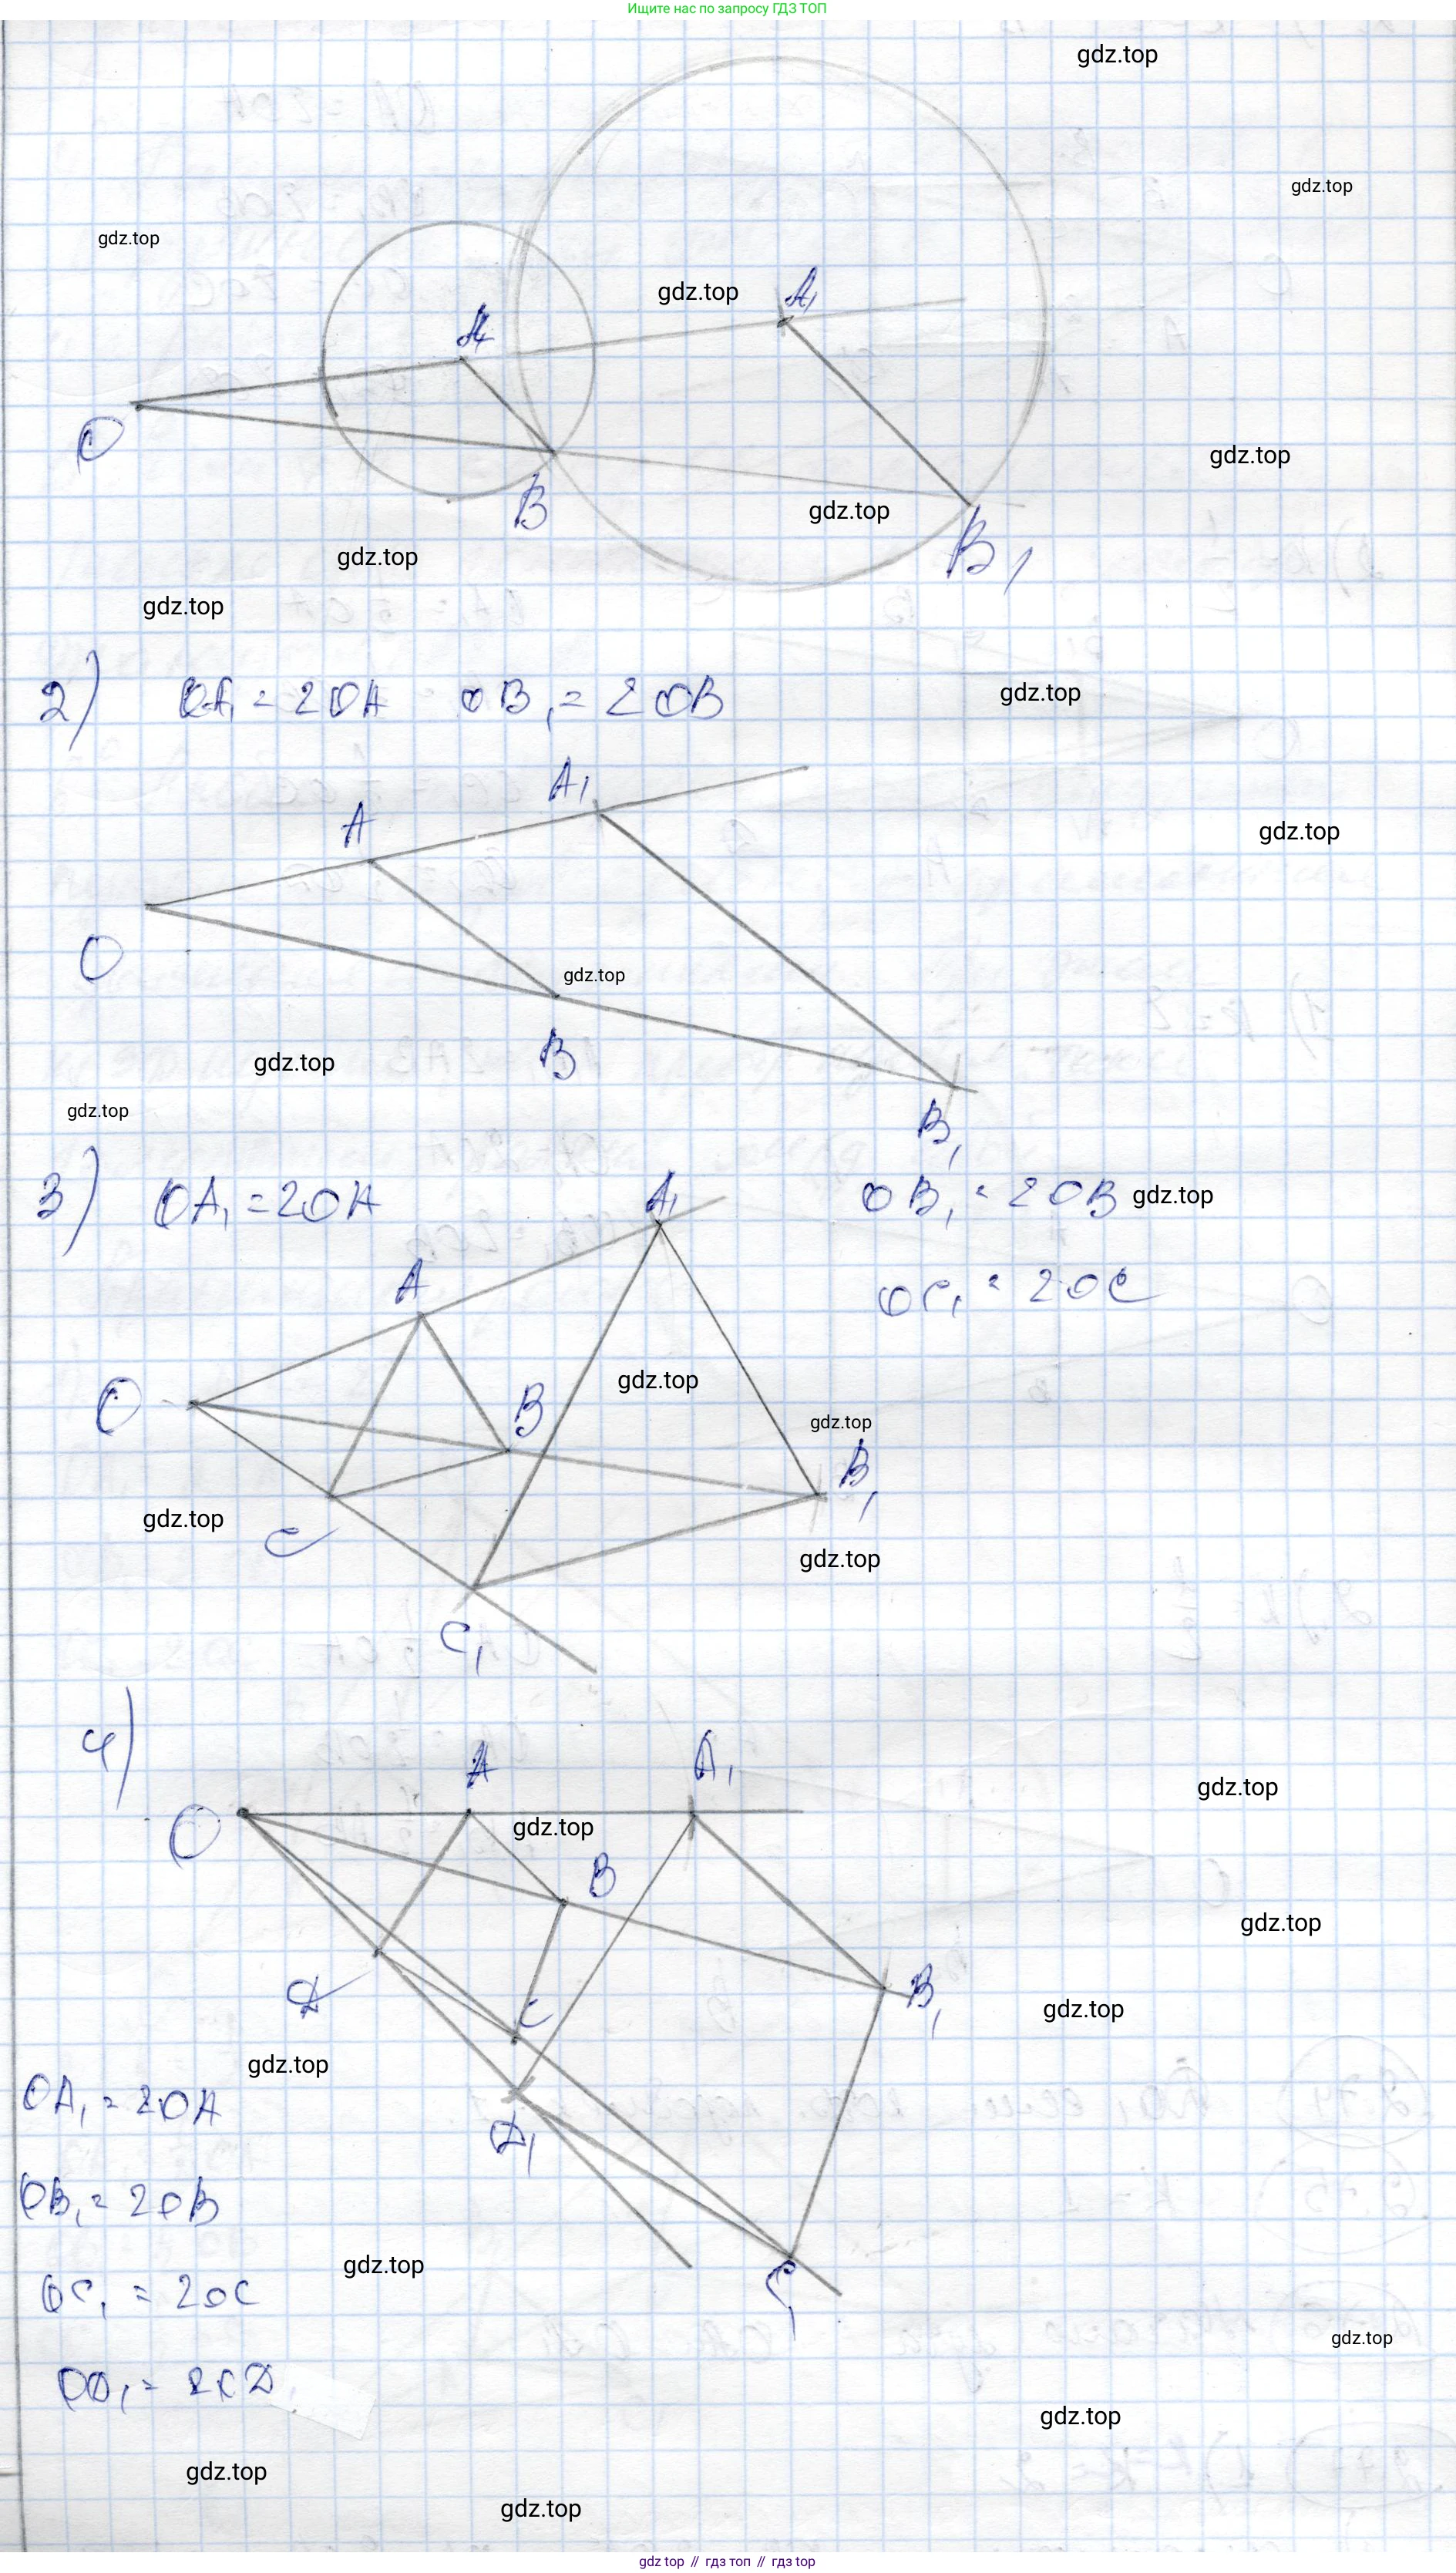 Ищите нас по запросу ГДЗ ТОП
gdz.top
gdz.top
gdz.top
A
gdz.top
A₁
O
gdz.top
B
gdz.top
B₁
gdz.top
gdz.top
2) OA₁ = 2OA OB₁ = 2OB
gdz.top
A₁
A
gdz.top
O
gdz.top
B
gdz.top
gdz.top
B₁
3) OA₁ = 2OA
A₁
OB₁ = 2OB
gdz.top
A
OC₁ = 2OC
O
gdz.top
B
gdz.top
B₁
gdz.top
C
gdz.top
C₁
4)
A
A₁
gdz.top
O
gdz.top
B
gdz.top
D
B₁
gdz.top
C
gdz.top
OA₁ = 2OA
D₁
OB₁ = 2OB
gdz.top
OC₁ = 2OC
C₁
gdz.top
gdz.top
gdz.top
gdz.top
gdz top // гдз топ // гдз top